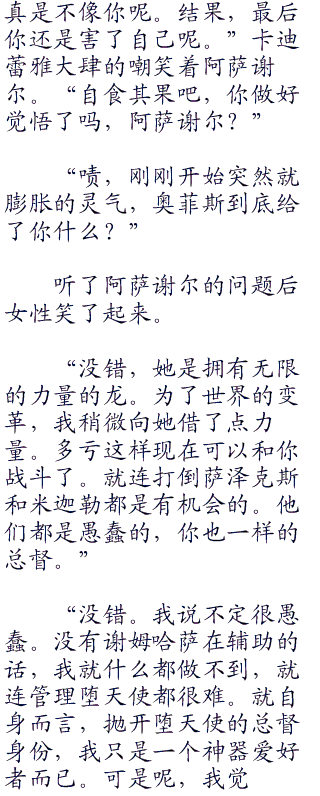 真是不像你呢。结果，最后
你还是害了自己呢。”卡迪
蕾雅大肆的嘲笑着阿萨谢
尔。“自食其果吧，你做好
觉悟了吗，阿萨谢尔？”
“啧，刚刚开始突然就
膨胀的灵气，奥菲斯到底给
了你什么？”
听了阿萨谢尔的问题后
女性笑了起来。
“没错，她是拥有无限
的力量的龙。为了世界的变
革，我稍微向她借了点力
量。多亏这样现在可以和你
战斗了。就连打倒萨泽克斯
和米迦勒都是有机会的。他
们都是愚蠢的，你也一样的
总督。”
“没错。我说不定很愚
蠢。没有谢姆哈萨在辅助的
话，我就什么都做不到，就
连管理堕天使都很难。就自
身而言，抛开堕天使的总督
身份，我只是一个神器爱好
者而已。可是呢，我觉